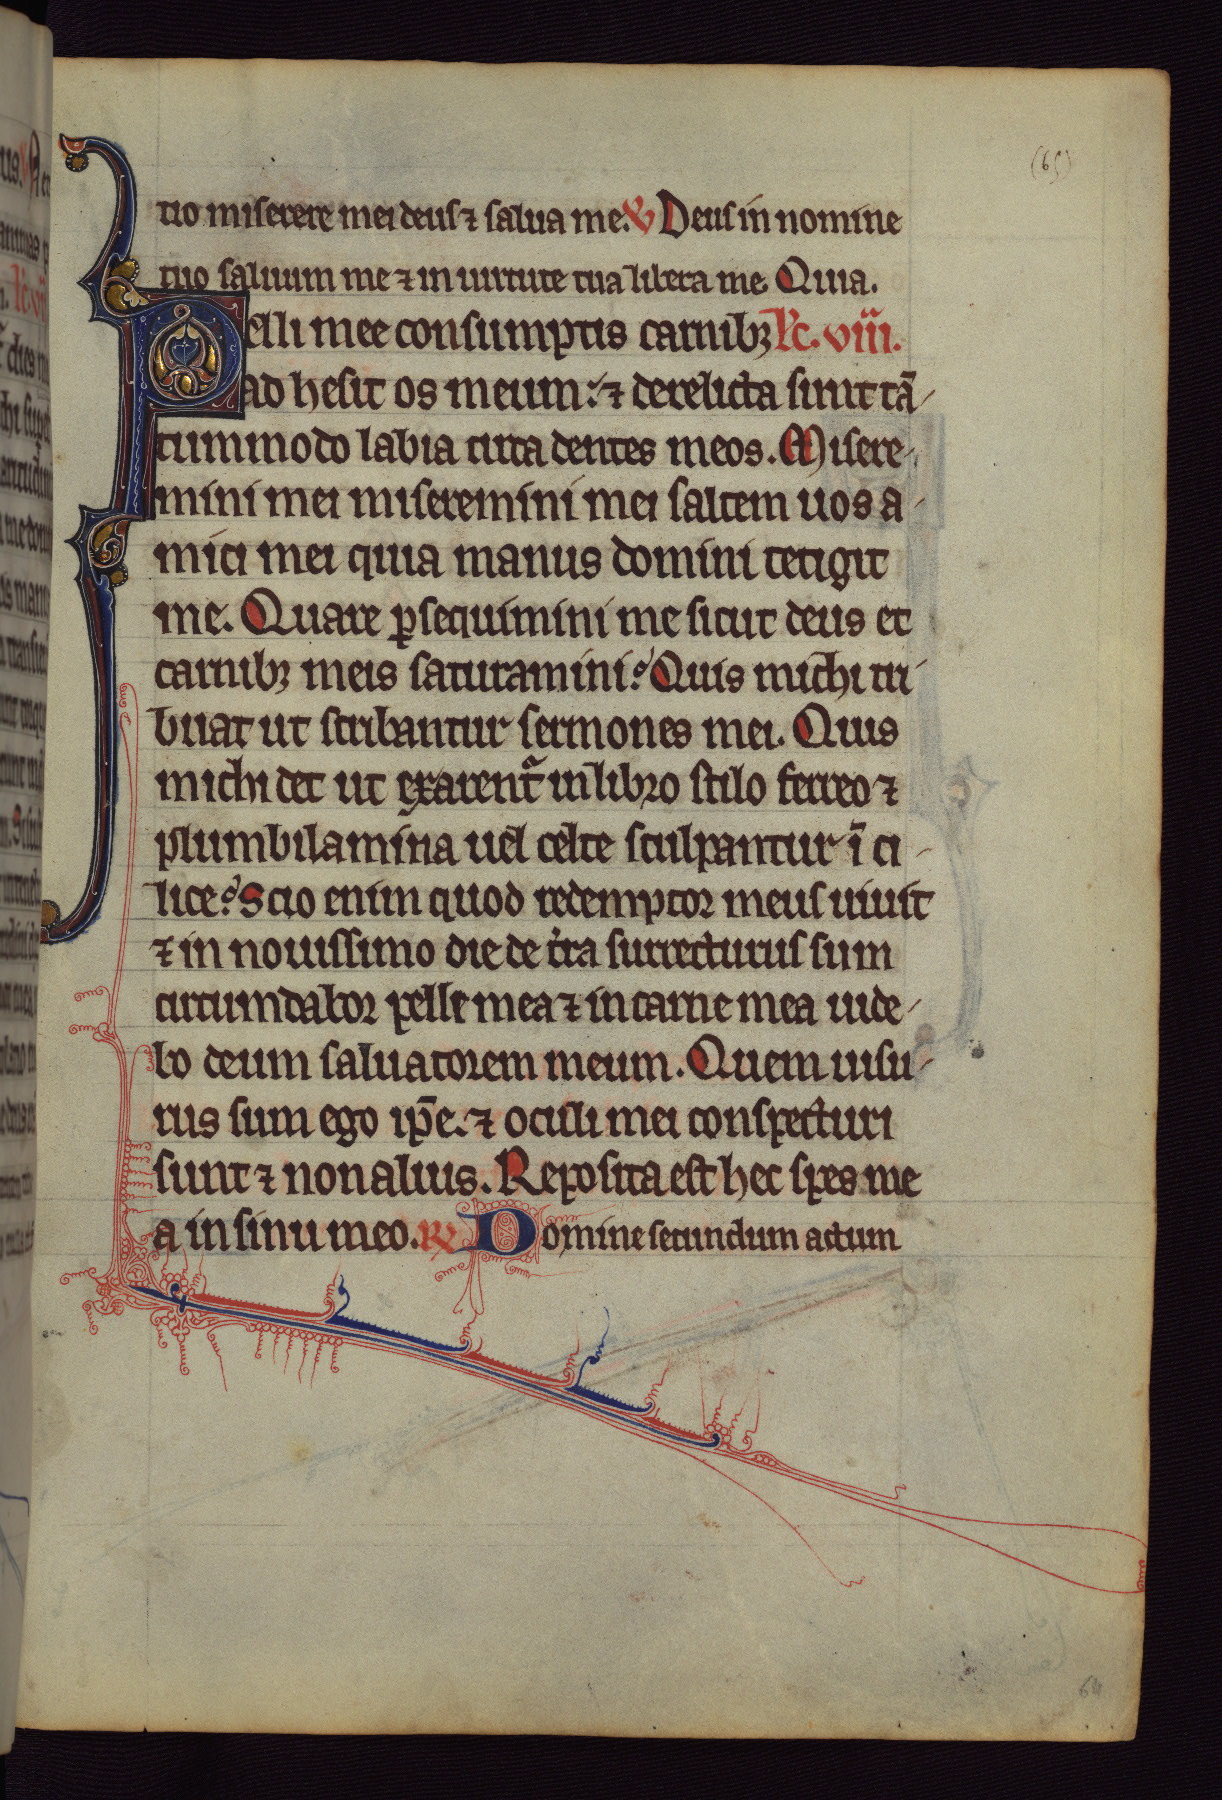 (65)
tio miserere mei deus ⁊ salua me. V Deus in nomine
tuo saluum me ⁊ in uirtute tua libera me. Quia.
Pelli mee consumptis carnibꝫ Lc. viii.
ad hesit os meum: ⁊ derelicta sunt tā
tummodo labia circa dentes meos. Misere
mini mei miseremini mei saltem uos a
mici mei quia manus domini tetigit
me. Quare ꝑsequimini me sicut deus et
carnibꝫ meis saturamini? Quis michi tri
buat ut scribantur sermones mei. Quis
michi det ut exarent᷑ in libro stilo ferreo ⁊
plumbi lamina uel celte sculpantur ī ci
lice? Scio enim quod redemptor meus uiuit
⁊ in nouissimo die de t̉ra surrecturus sum
circumdabor pelle mea ⁊ in carne mea uide
bo deum saluatorem meum. Quem uisu
rus sum ego ip̄e. ⁊ oculi mei conspecturi
sunt ⁊ non alius. Reposita est hec spes me
a in sinu meo. ℞ Domine secundum actum
64